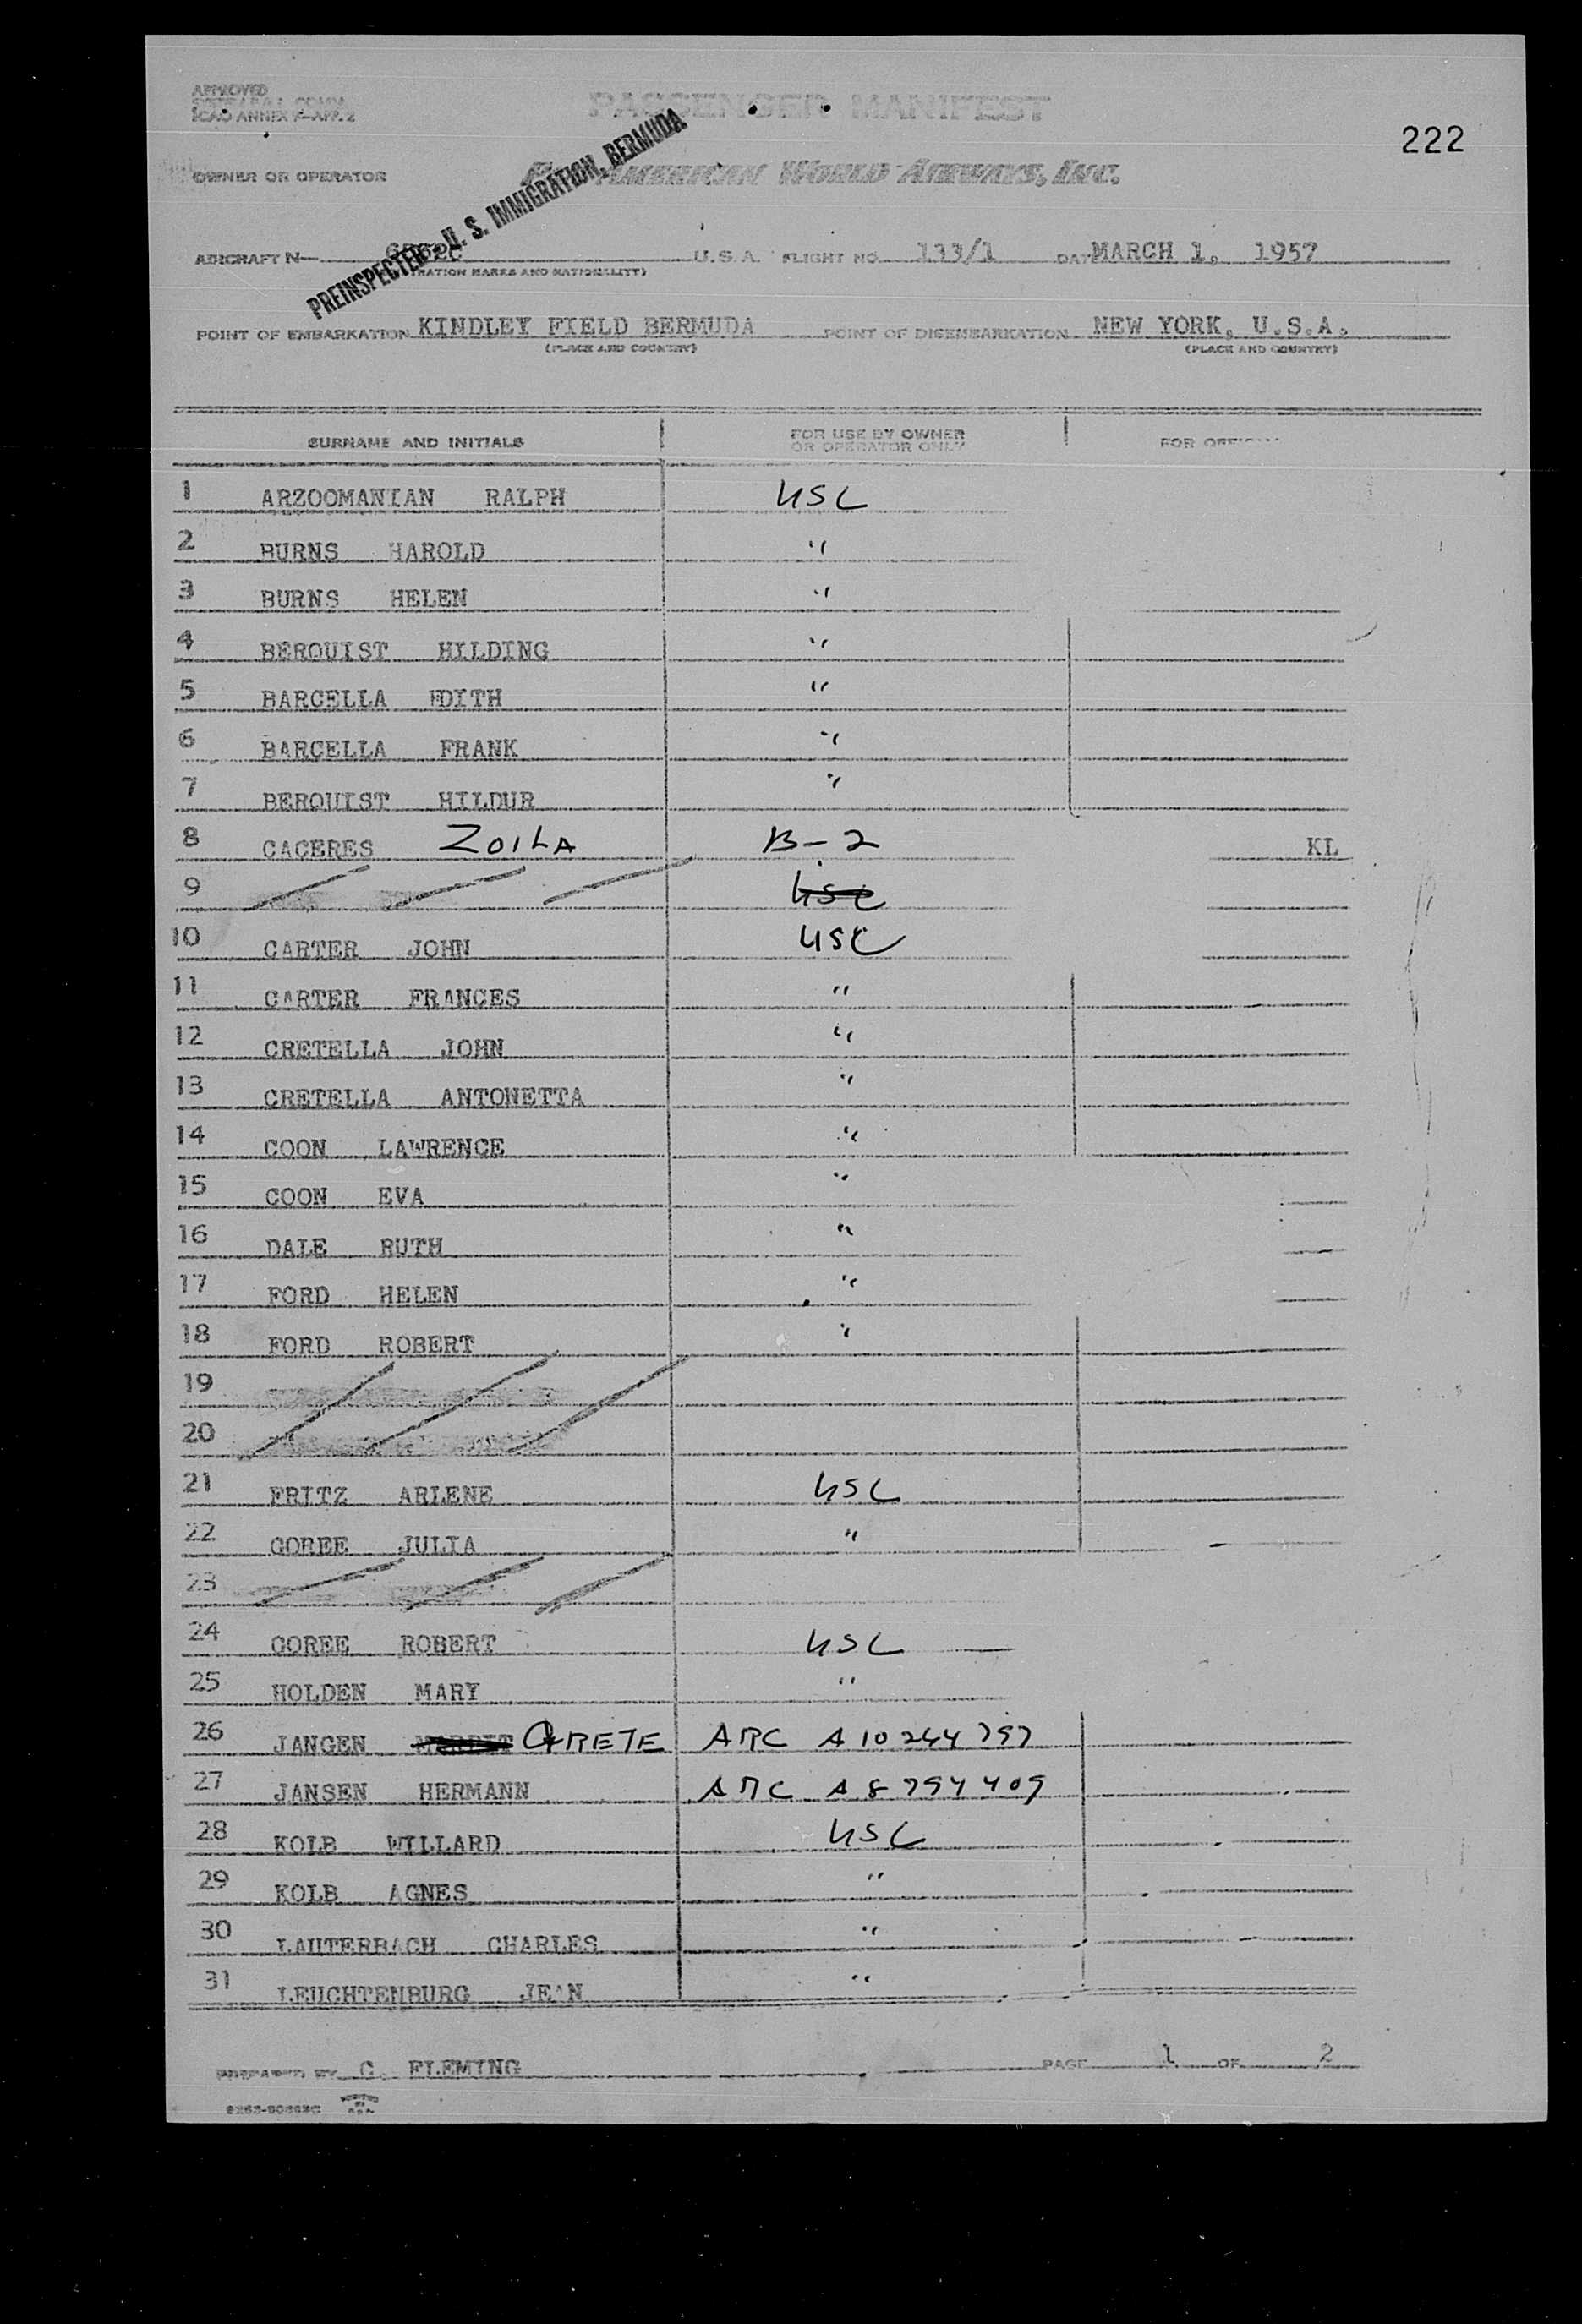 APPROVED
ICAO ANNEX 9-APP. 2
PASSENGER MANIFEST
222
OWNER OR OPERATOR
AMERICAN WORLD AIRWAYS, INC.
PREINSPECTED U. S. IMMIGRATION, BERMUDA
AIRCRAFT N— U.S.A. FLIGHT NO. 133/1 DATE MARCH 1, 1957
MARKS AND NATIONALITY)
POINT OF EMBARKATION KINDLEY FIELD BERMUDA POINT OF DISEMBARKATION NEW YORK, U.S.A.
(PLACE AND COUNTRY) (PLACE AND COUNTRY)
SURNAME AND INITIALS FOR USE BY OWNER OR OPERATOR ONLY FOR
1 ARZOOMANIAN RALPH USC
2 BURNS HAROLD "
3 BURNS HELEN "
4 BERQUIST HILDING "
5 BARCELLA EDITH "
6 BARCELLA FRANK "
7 BERQUIST HILDUR "
8 CACERES ZOILA B-2 KL
9 USC
10 CARTER JOHN USC
11 CARTER FRANCES "
12 CRETELLA JOHN "
13 CRETELLA ANTONETTA "
14 COON LAWRENCE "
15 COON EVA "
16 DALE RUTH "
17 FORD HELEN "
18 FORD ROBERT "
19
20
21 FRITZ ARLENE USC
22 GOREE JULIA "
23
24 GOREE ROBERT USC
25 HOLDEN MARY "
26 JANGEN GRETE ARC
27 JANSEN HERMANN ARC
28 KOLB WILLARD USC
29 KOLB AGNES "
30 LAUTERBACH CHARLES "
31 LEUCHTENBURG JEAN "
PREPARED BY C. FLEMING PAGE 1 OF 2